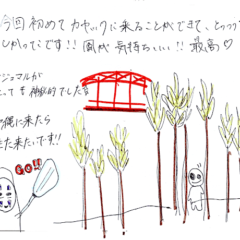 今回初めてカヤックに来ることができて、とっても
しかったです!!風が気持ちいい!!最高♡
ジュマルが
とっても神秘的でした
縄に来たら
また来たいです!!
GO!!